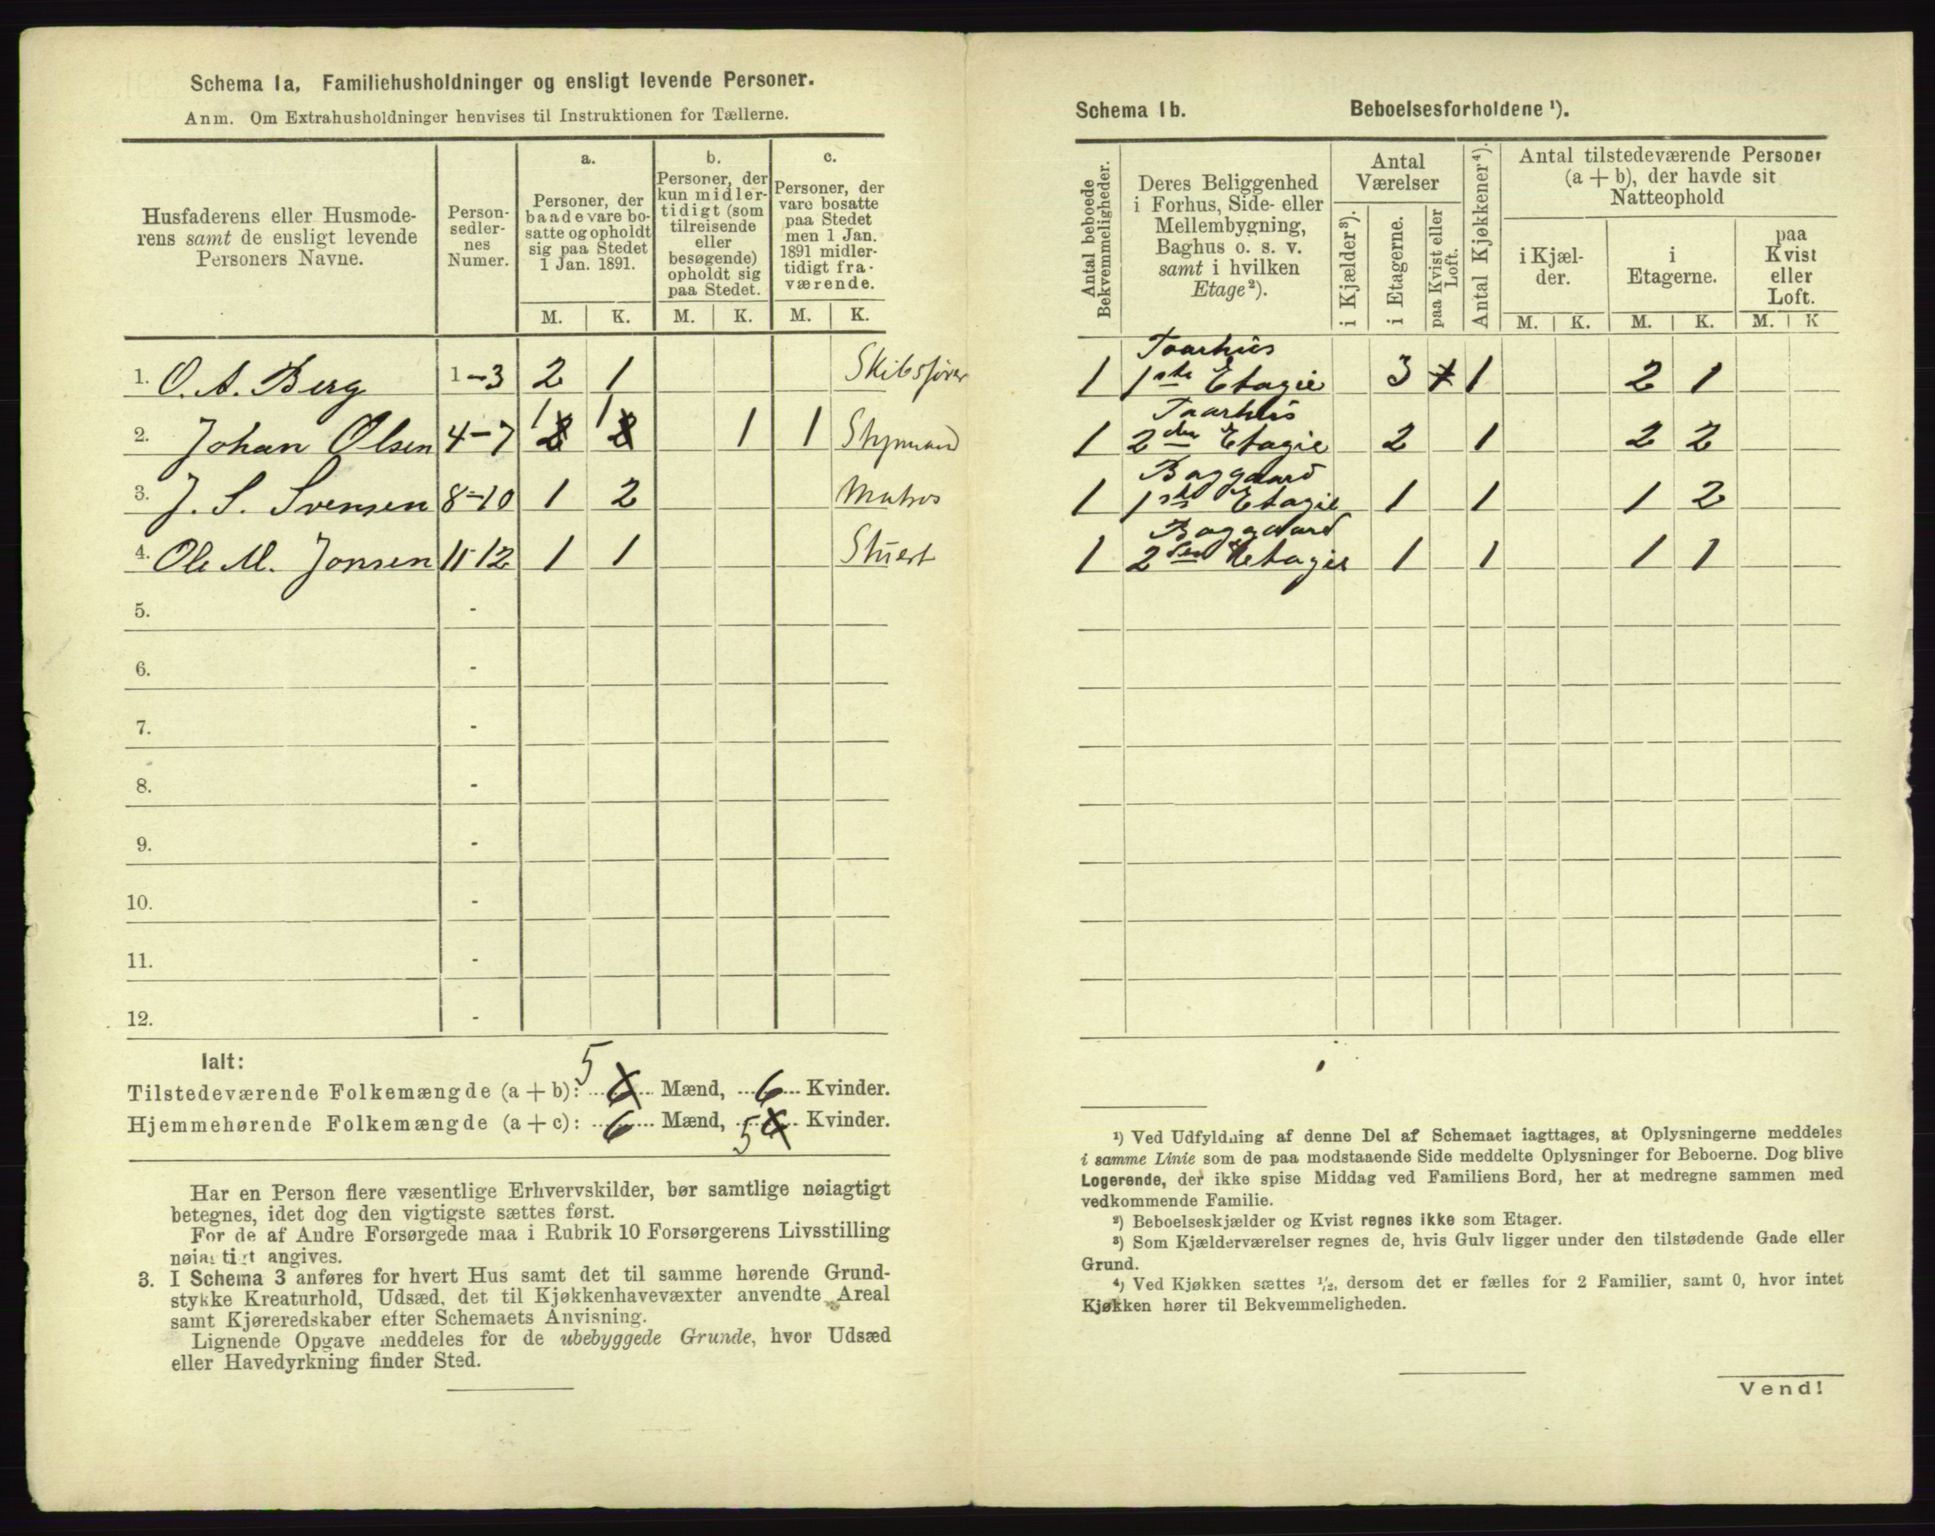 Schema 1a, Familiehusholdninger og ensligt levende Personer.
Anm. Om Extrahusholdninger henvises til Instruktionen for Tællerne.
Husfaderens eller Husmode-
rens samt de ensligt levende
Personers Navne.
Person-
sedler-
nes
Numer.
a.
Personer, der
baade vare bo-
satte og opholdt
sig paa Stedet
1 Jan. 1891.
b.
Personer, der
kun midler-
tidigt (som
tilreisende
eller
besøgende)
opholdt sig
paa Stedet.
c.
Personer, der
vare bosatte
paa Stedet
men 1 Jan.
1891 midler-
tidigt fra-
værende.
M. K. M. K. M. K.
1. O. A. Berg 1-3 2 1 Skibsfører
2. Johan Olsen 4-7 1 2 1 2 1 1 Styrmand
3. J. S. Svensen 8-10 1 2 Matros
4. Ole M. Jonsen 11-12 1 1 Stuert
5. -
6. -
7. -
8. -
9. -
10. -
11. -
12. -
Ialt:
Tilstedeværende Folkemængde (a + b): 5 6 Mænd, 6 Kvinder.
Hjemmehørende Folkemængde (a + c): 6 Mænd, 5 6 Kvinder.
Har en Person flere væsentlige Erhvervskilder, bør samtlige nøiagtigt
betegnes, idet dog den vigtigste sættes først.
For de af Andre Forsørgede maa i Rubrik 10 Forsørgerens Livsstilling
nøiagtigt angives.
3. I Schema 3 anføres for hvert Hus samt det til samme hørende Grund-
stykke Kreaturhold, Udsæd, det til Kjøkkenhavevæxter anvendte Areal
samt Kjøreredskaber efter Schemaets Anvisning.
Lignende Opgave meddeles for de ubebyggede Grunde, hvor Udsæd
eller Havedyrkning finder Sted.
Schema 1b. Beboelsesforholdene ¹).
Antal beboede
Bekvemmeligheder.
Deres Beliggenhed
i Forhus, Side- eller
Mellembygning,
Baghus o. s. v.
samt i hvilken
Etage²).
Antal
Værelser
i Kjælder³).
i Etagerne.
paa Kvist eller
Loft.
Antal Kjøkkener⁴).
Antal tilstedeværende Personer
(a + b), der havde sit
Natteophold
i Kjæl-
der.
i
Etagerne.
paa
Kvist
eller
Loft.
M. K. M. K. M. K
Taarhus
1 1ste Etagie 3 1 2 1
Taarhus
1 2den Etagie 2 1 2 2
Baggaard
1 1ste Etagie 1 1 1 2
Baggaard
1 2den Etagie 1 1 1 1
¹) Ved Udfyldning af denne Del af Schemaet iagttages, at Oplysningerne meddeles
i samme Linie som de paa modstaaende Side meddelte Oplysninger for Beboerne. Dog blive
Logerende, der ikke spise Middag ved Familiens Bord, her at medregne sammen med
vedkommende Familie.
²) Beboelseskjælder og Kvist regnes ikke som Etager.
³) Som Kjælderværelser regnes de, hvis Gulv ligger under den tilstødende Gade eller
Grund.
⁴) Ved Kjøkken sættes ½, dersom det er fælles for 2 Familier, samt 0, hvor intet
Kjøkken hører til Bekvemmeligheden.
Vend!